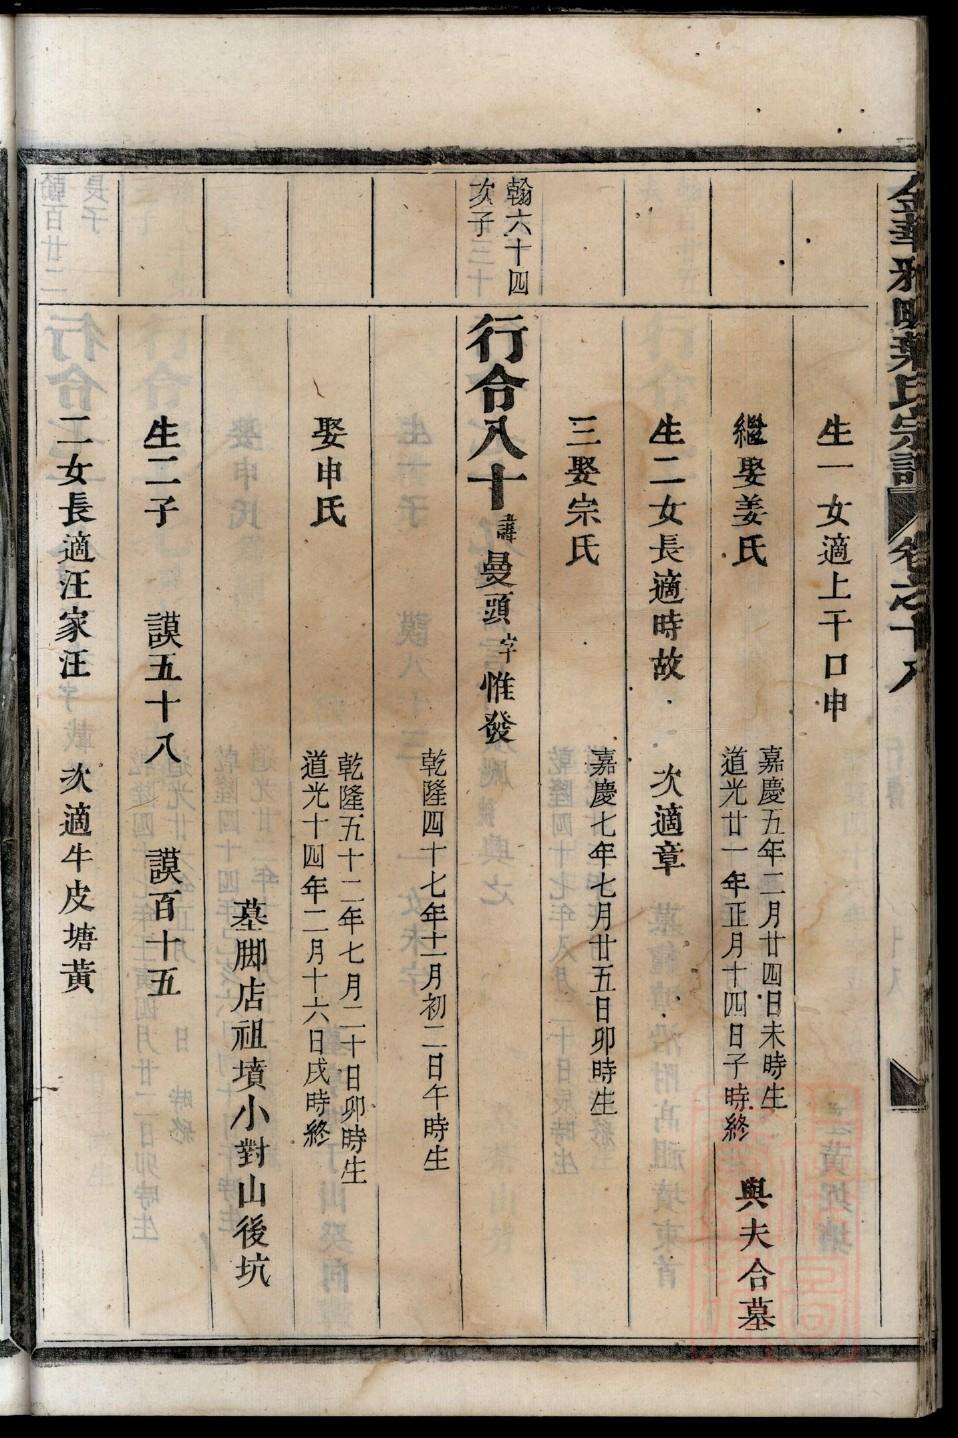 金華雅畈葉氏宗譜 卷之十八
生一女適上干口申
繼娶姜氏
嘉慶五年二月廿四日未時生
道光廿一年正月十四日子時終
與夫合墓
生二女長適時故 次適章
三娶宗氏
嘉慶七年七月廿五日卯時生
翰六十四
次子
行令八十 諱曼頭 字惟發
乾隆四十七年十一月初二日午時生
娶申氏
乾隆五十二年七月二十日卯時生
道光十四年二月十六日戌時終
墓脚店祖墳小對山後坑
生二子 謨五十八 謨百十五
二女長適汪家汪 次適牛皮塘黃